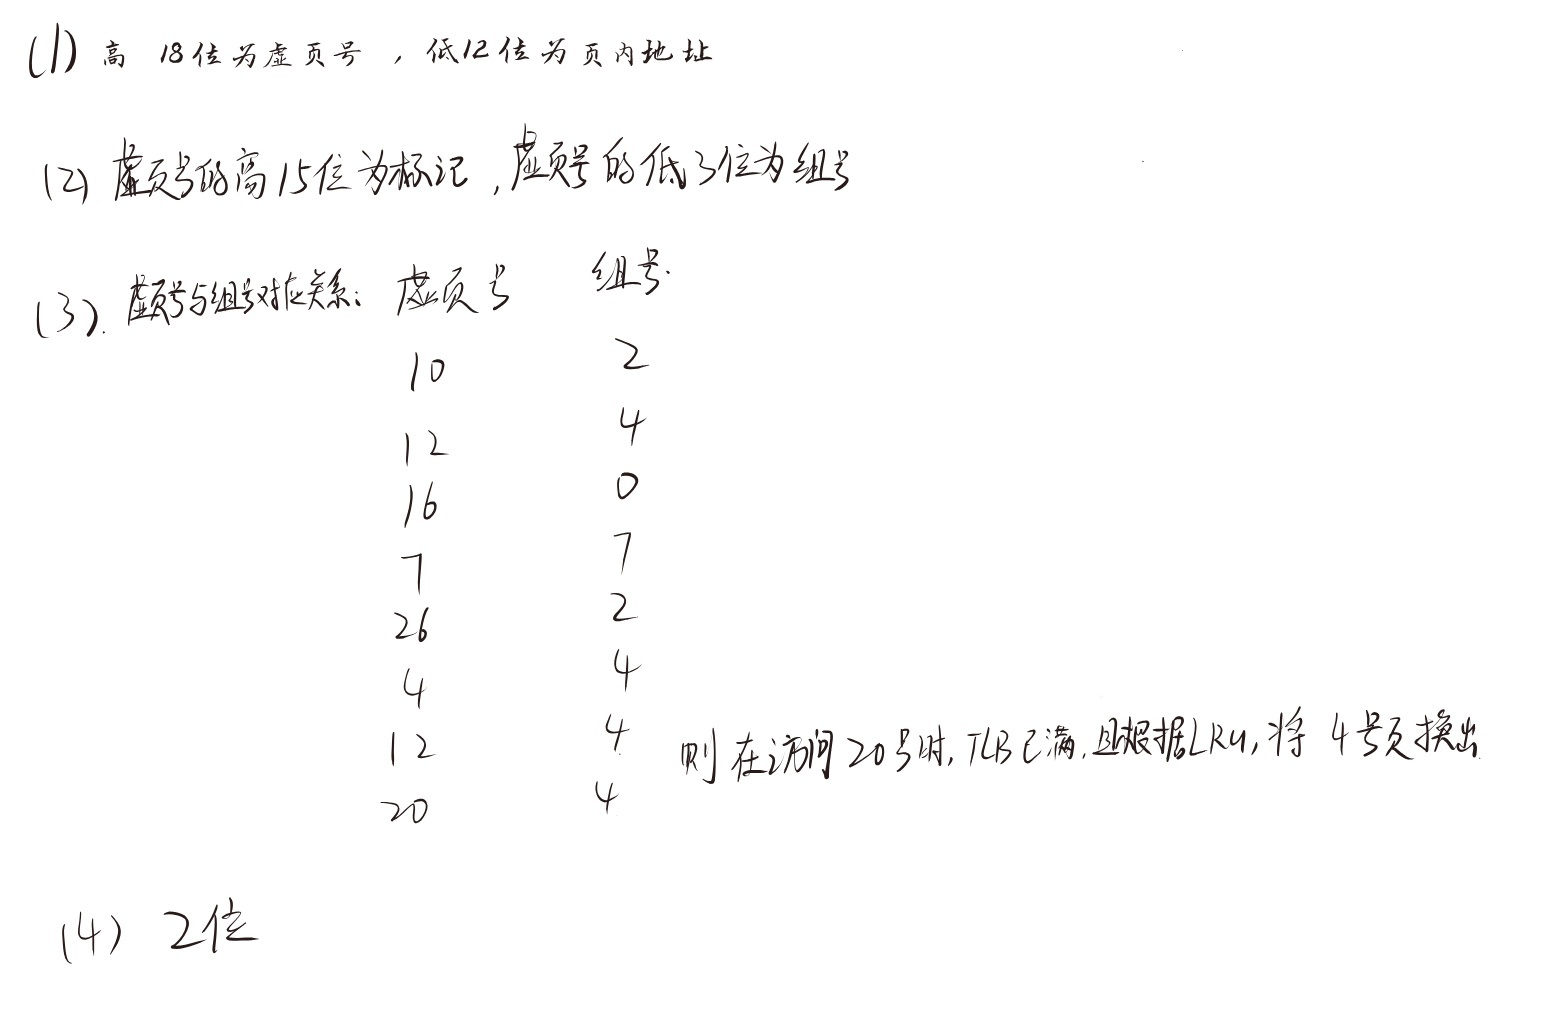 (1) 高 18位为虚页号 , 低12位为页内地址
(2) 虚页号的高15位为标记 , 虚页号的低3位为组号
(3). 虚页号与组号对应关系: 虚页号 组号.
10 2
12 4
16 0
7 7
26 2
4 4
12 4 则在访问20号时, TLB已满, 且根据LRU, 将 4号页换出
20 4
(4) 2位